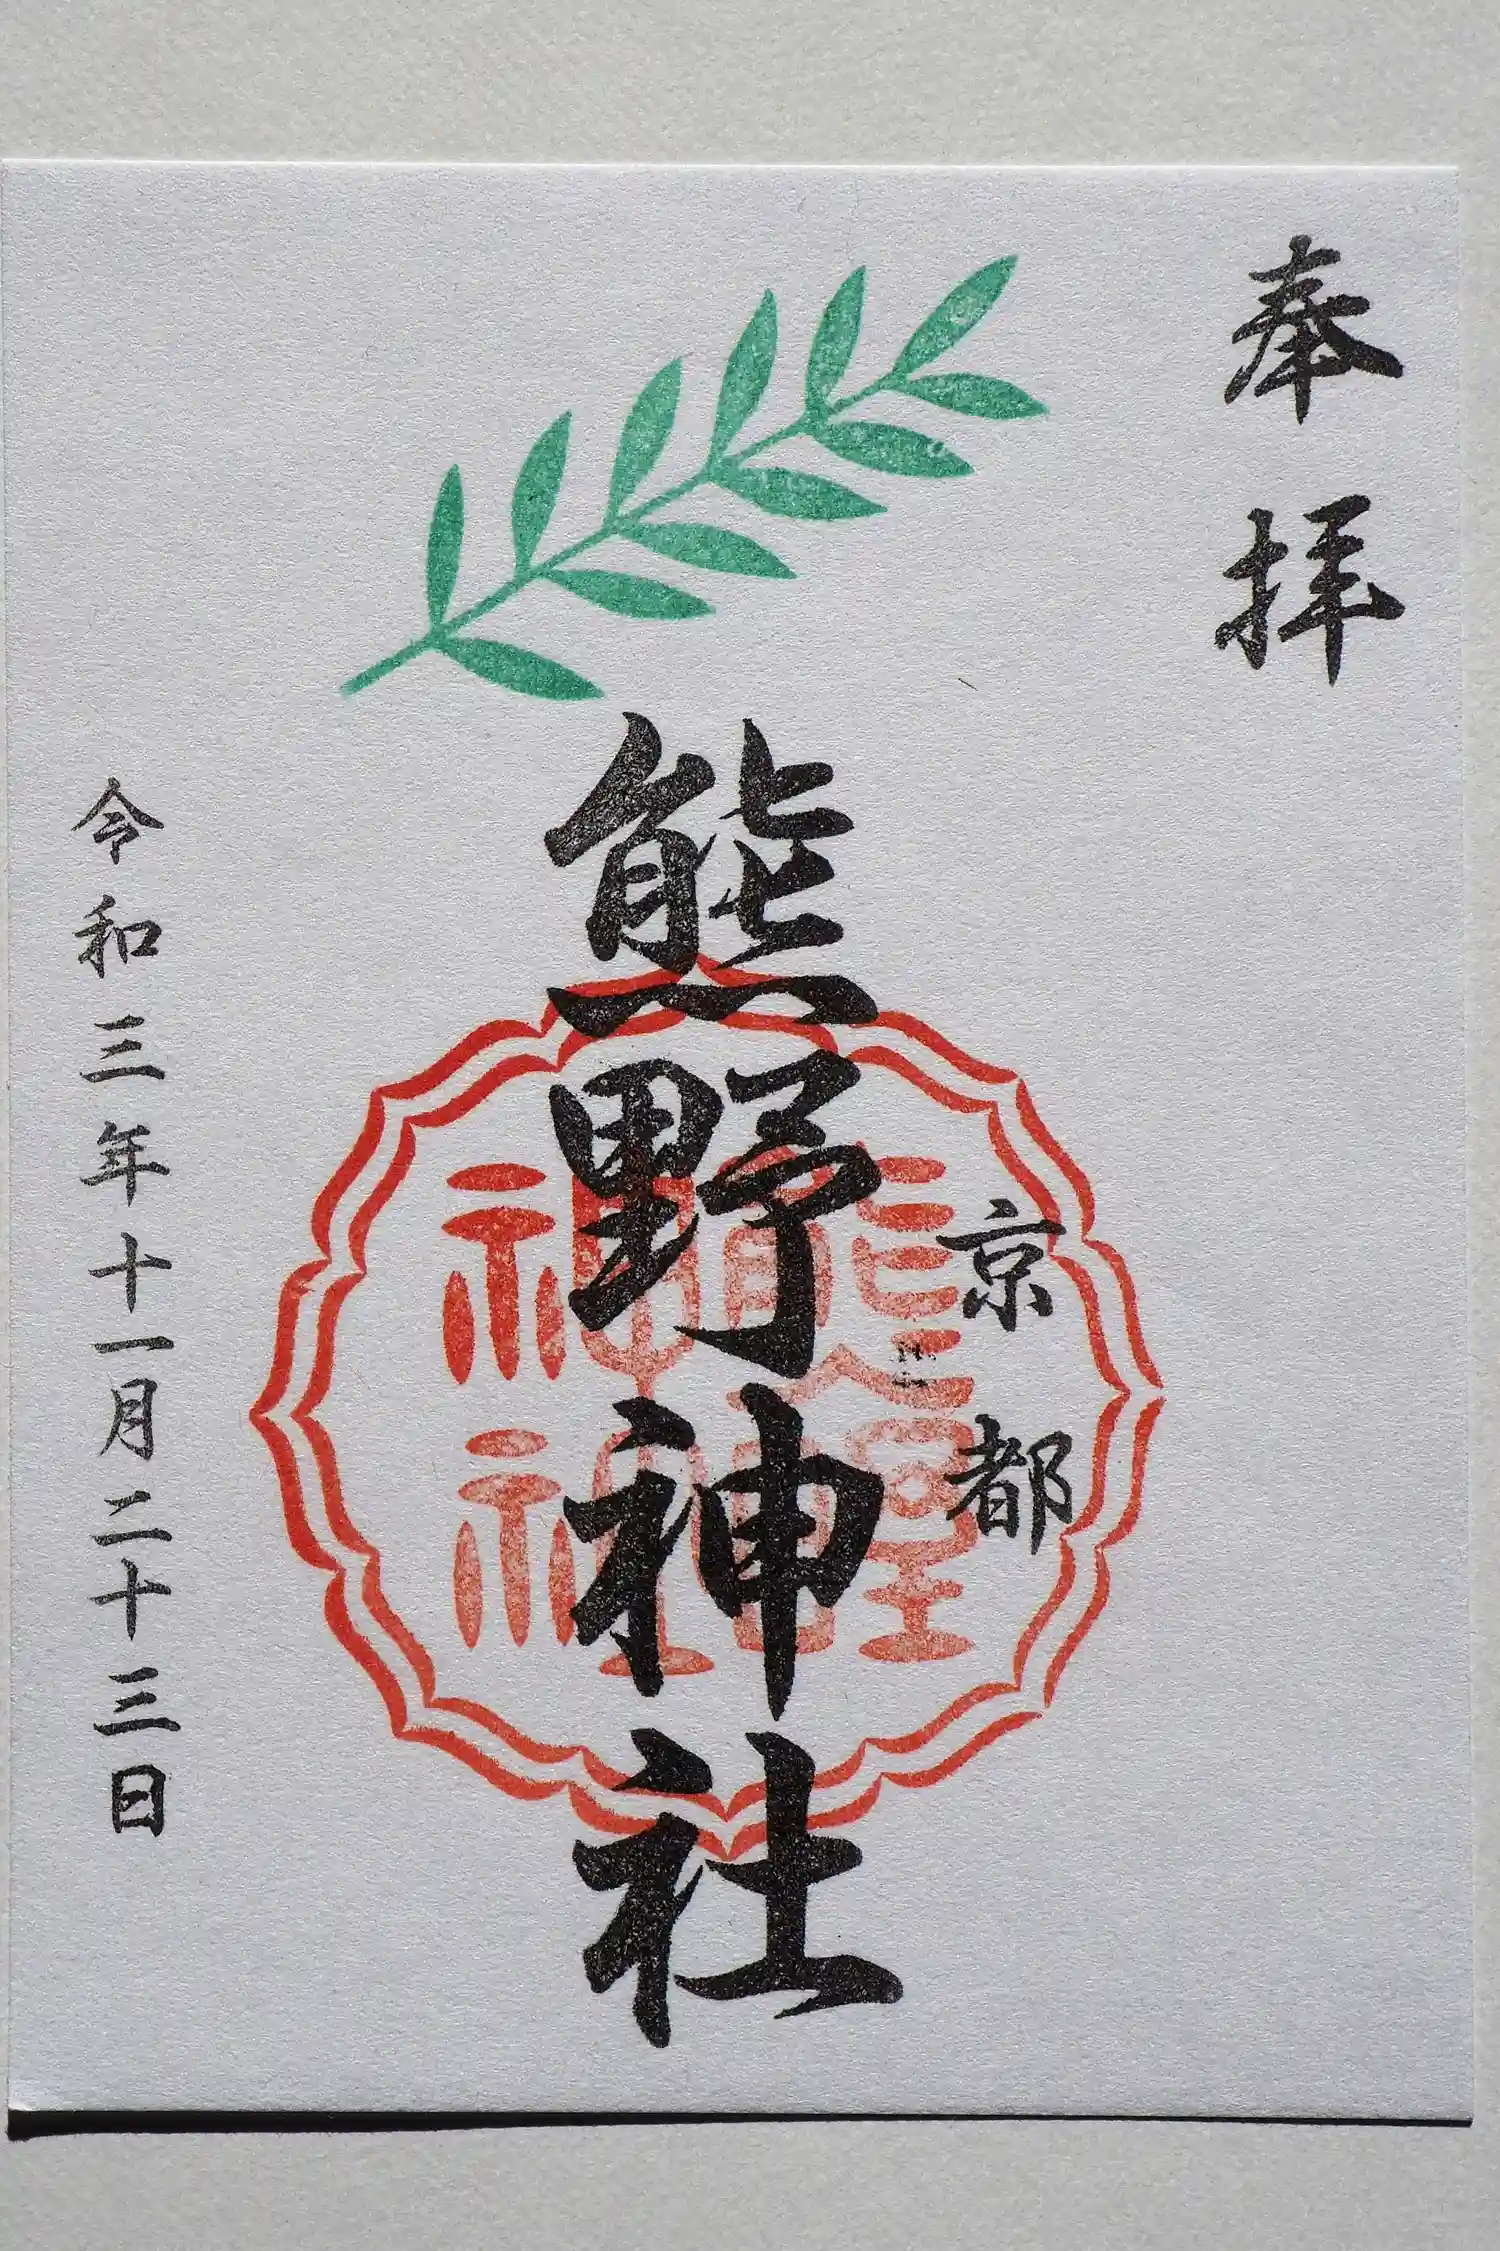 奉拝
京都
熊野神社
熊野神社
令和三年十一月二十三日